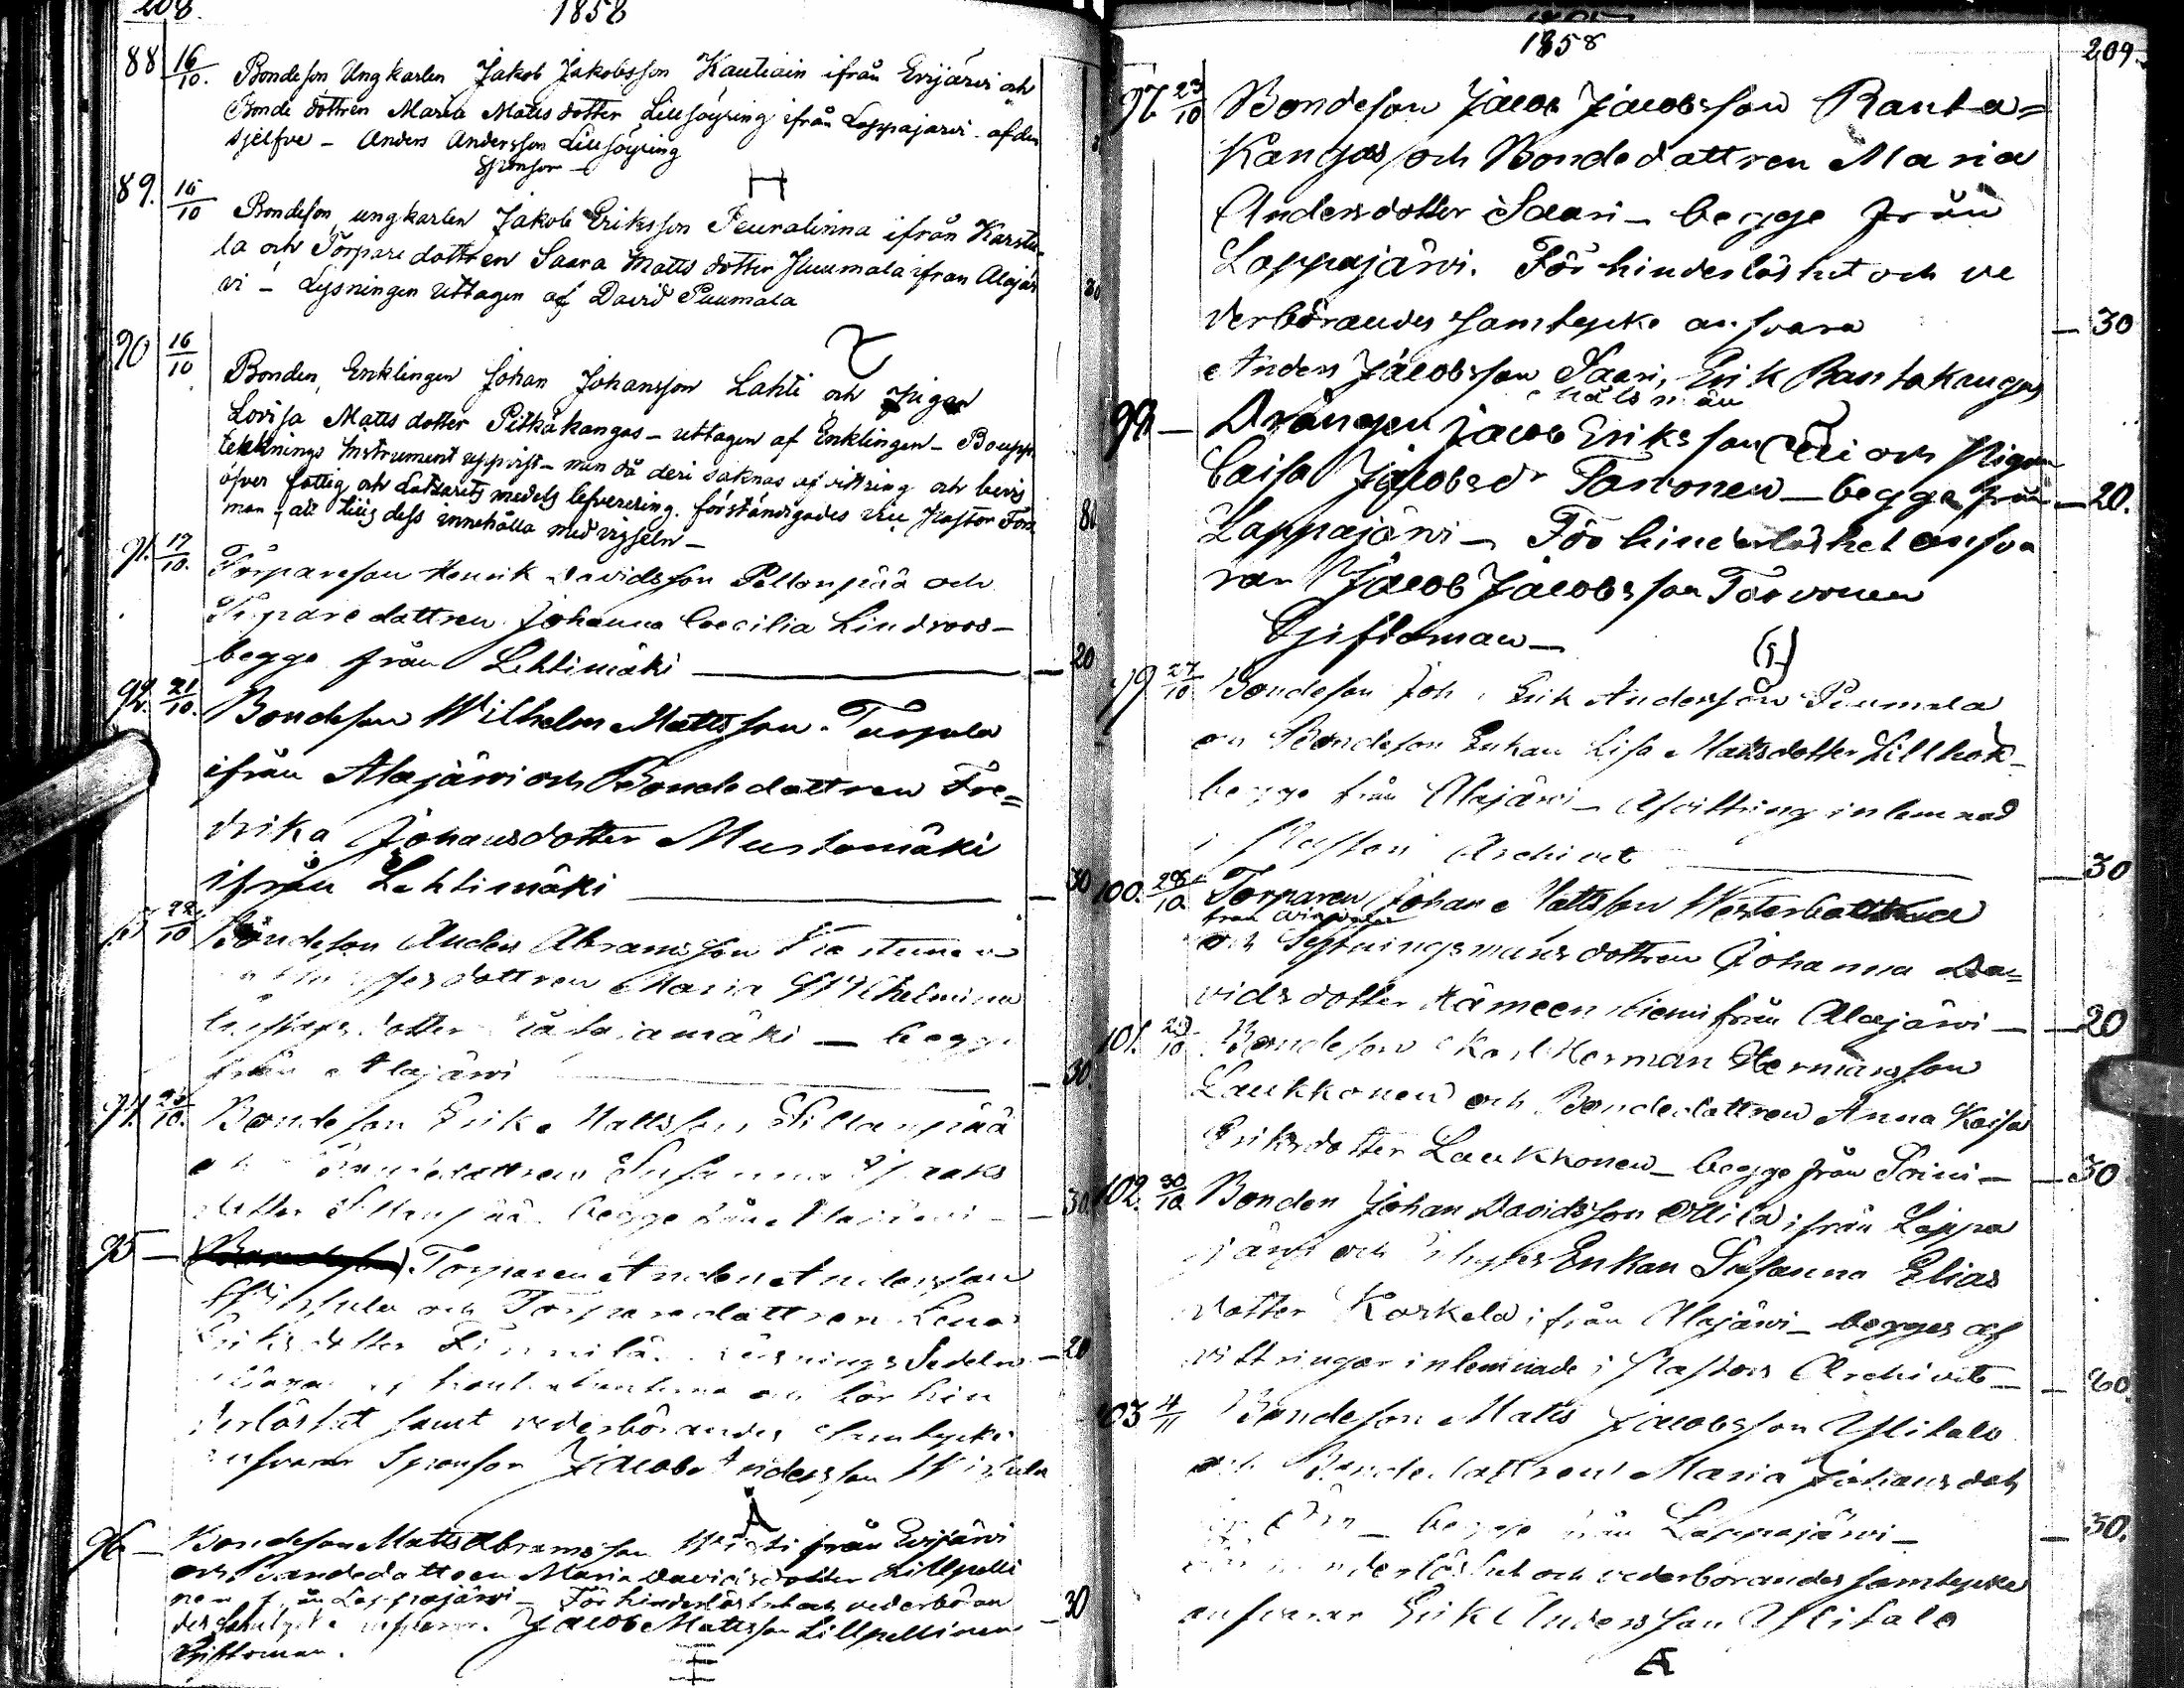 208.
1858
88 16/10. Bondeson Ungkarlen Jakob Jakobsson Kautiain ifrån Evijärvi och
Bonde dottren Maria Matts dotter Lillsöyring ifrån Lappajärvi - af den
sjelfve - Anders Andersson Lillsöyring
Sponsor -
89. 16/10 Bondeson, ungkarlen Jakob Eriksson Peuralinna ifrån Karstu-
la och Torpare dottren Saara Matts dotter Puumala ifrån Alajär
vi - Lysningen uttagen af David Puumala 30
90 16/10 Bonden, Enklingen Johan Johansson Lahti och Pigan
Lovisa Matts dotter Pitkäkangas - uttagen af Enklingen - Boupp-
tecknings Instrument uppvist - men då deri saknas qvittring och bevis
öfver fattig och Lazaretts medels lefverering, förständigades
man, att tills dess innehålla med vigseln -
91. 17/10. Torpareson Henrik Davidsson Peltonpää och
Torpare dottren Johanna Caecilia Lindroos -
begge från Lehtimäki — 20
92. 21/10. Bondeson Wilhelm Mattsson
ifrån Alajärvi och Bondedottren Fre=
drika Johansdotter Mustamäki
ifrån Lehtimäki — 30
93 22/10 Bondeson Anders Abramsson
dottren Maria Wilhelmina
dotter — begge
från Alajärvi — 30
94. 23/10. Bondeson Erik Mattsson Sillanpää
och Bondedottren Susanna Isaaks
dotter Sillanpää begge från Alajärvi — 30
95 — Torparen Anders Andersson
och Torparedottren Lena
Eriksdotter Lysnings Sedeln — 20
och för hin
derlöshet samt vederbörandes samtycke
ansvarar Sponsor Jacob Andersson
96 — Bondeson Matts Abramsson från Evijärvi
och Bondedottren Maria Davidsdotter Lillpelli
nen från Lappajärvi — För hinderlöshet och vederböran
des samtycke ansvarar Jacob Mattsson Lillpellinen — 30
Giftoman.
1858
209.
97. 23/10 Bondeson Jacob Jacobsson Ranta=
Kangas och Bondedottren Maria
Andersdotter Saari — begge från
Lappajärvi. För hinderlöshet och ve
derbörandes samtycke ansvara — 30
Anders Jacobsson Saari, Erik Rantakangas
Målsmän
98 — Drängen Jacob Eriksson och Pigan
Caisa Jacobsdr Torvonen — begge från — 20.
Lappajärvi — För hinderlöshet ansva
rar Jacob Jacobsson Torvonen
Giftoman —
99 27/10 Bondeson Joh. Erik Andersson Puumala
och Bondeson Enkan Lisa Mattsdotter
begge från Alajärvi — Afvittring inlemnad
i Pastors Archivet — 30
100. 28/10. Torparen Johan Mattsson
från
och dottren Johanna Da=
vidsdotter Hämeenniemi från Alajärvi — 20
101. 29/10. Bondeson Karl Herman Hermansson
Laukkonen och Bondedottren Anna Kaisa
Eriksdotter Laukkonen — begge från Soini — 30
102. 30/10 Bonden Johan Davidsson Ollila ifrån Lappa
järvi och Enkan Susanna Elias
dotter Koskela ifrån Alajärvi — begges af
vittringar inlemnade i Pastors Archivet — 60.
103 4/11 Bondeson Matts Jacobsson Ylitalo
och Bondedottren Maria Johansdot
begge från Lappajärvi — 30.
För hinderlöshet och vederbörandes samtycke
ansvarar Erik Andersson Ylitalo